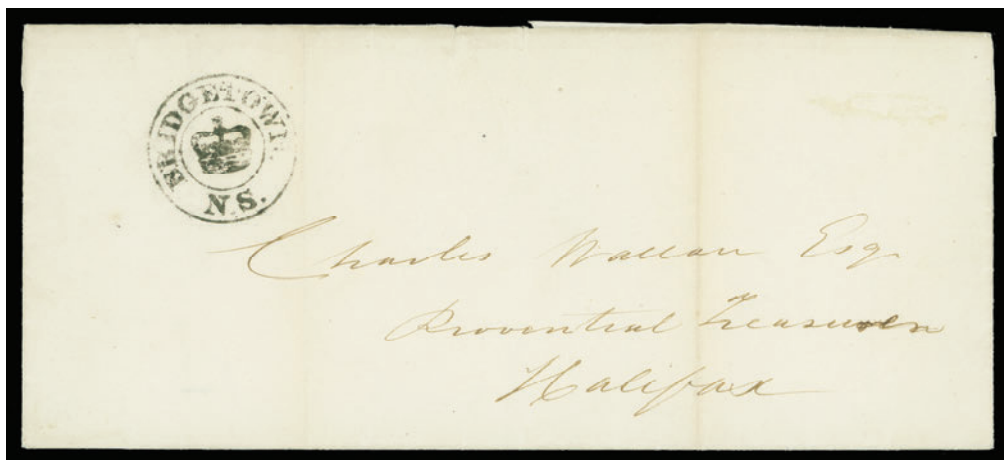 BRIDGETOWN.
N.S.
Charles Wallace Esq
Provential Treasurer
Halifax